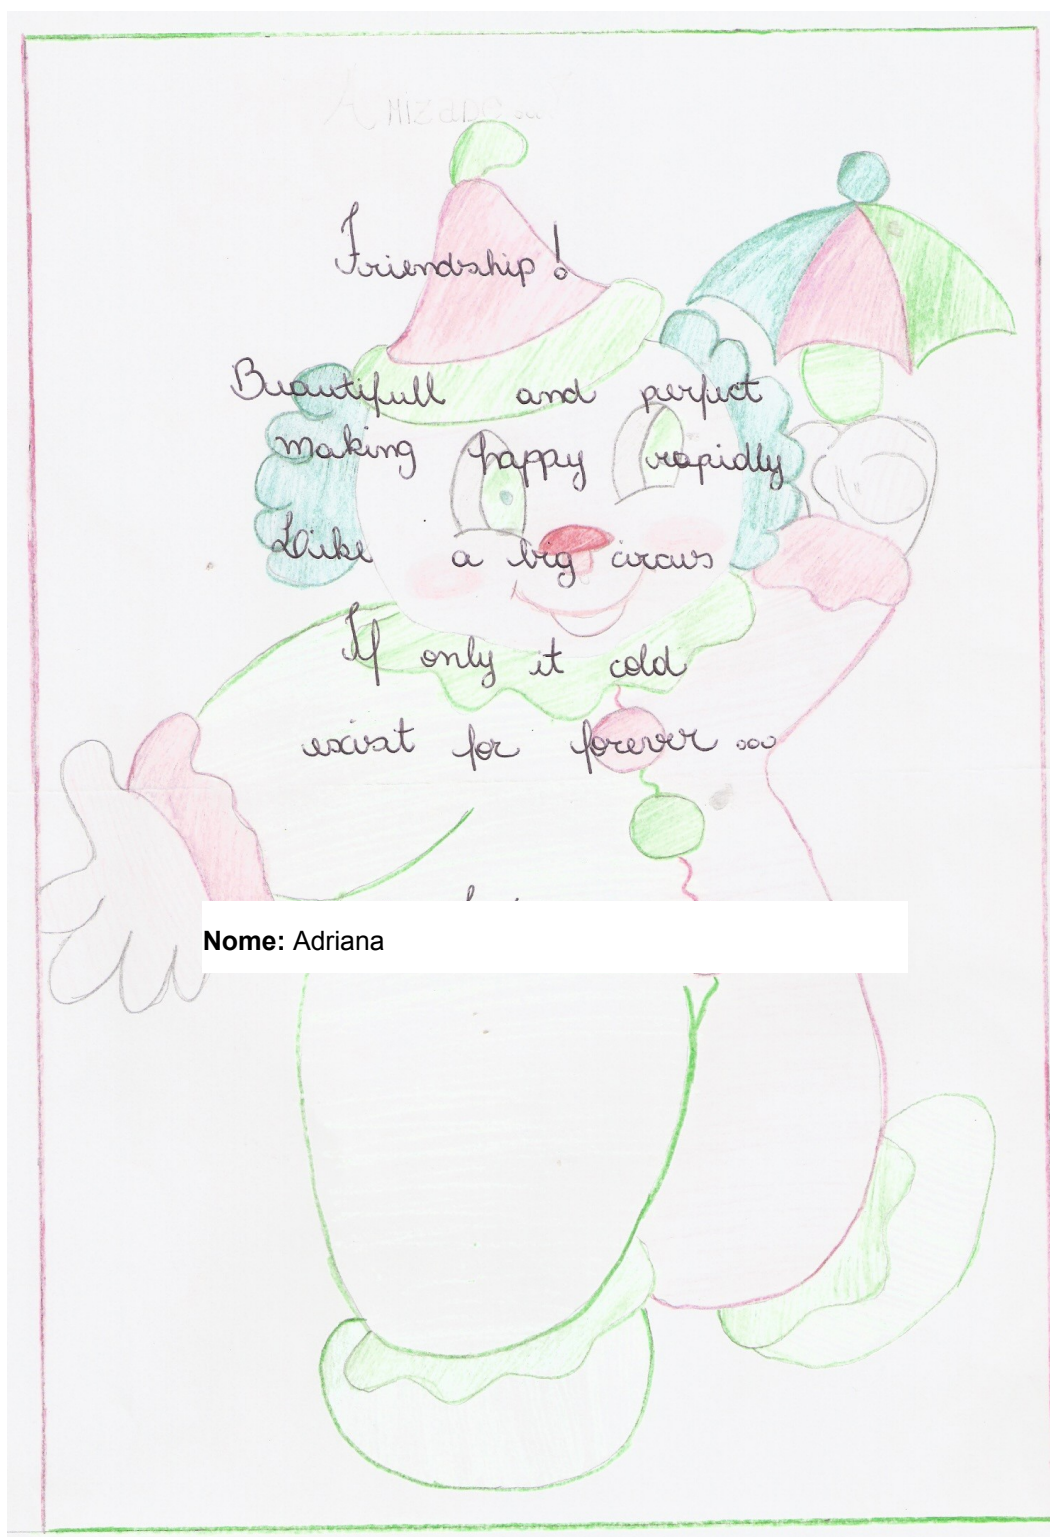 Friendship!
Beautifull and perfect
making happy rapidly
Like a big circus
If only it cold
exist for forever ...
Nome: Adriana